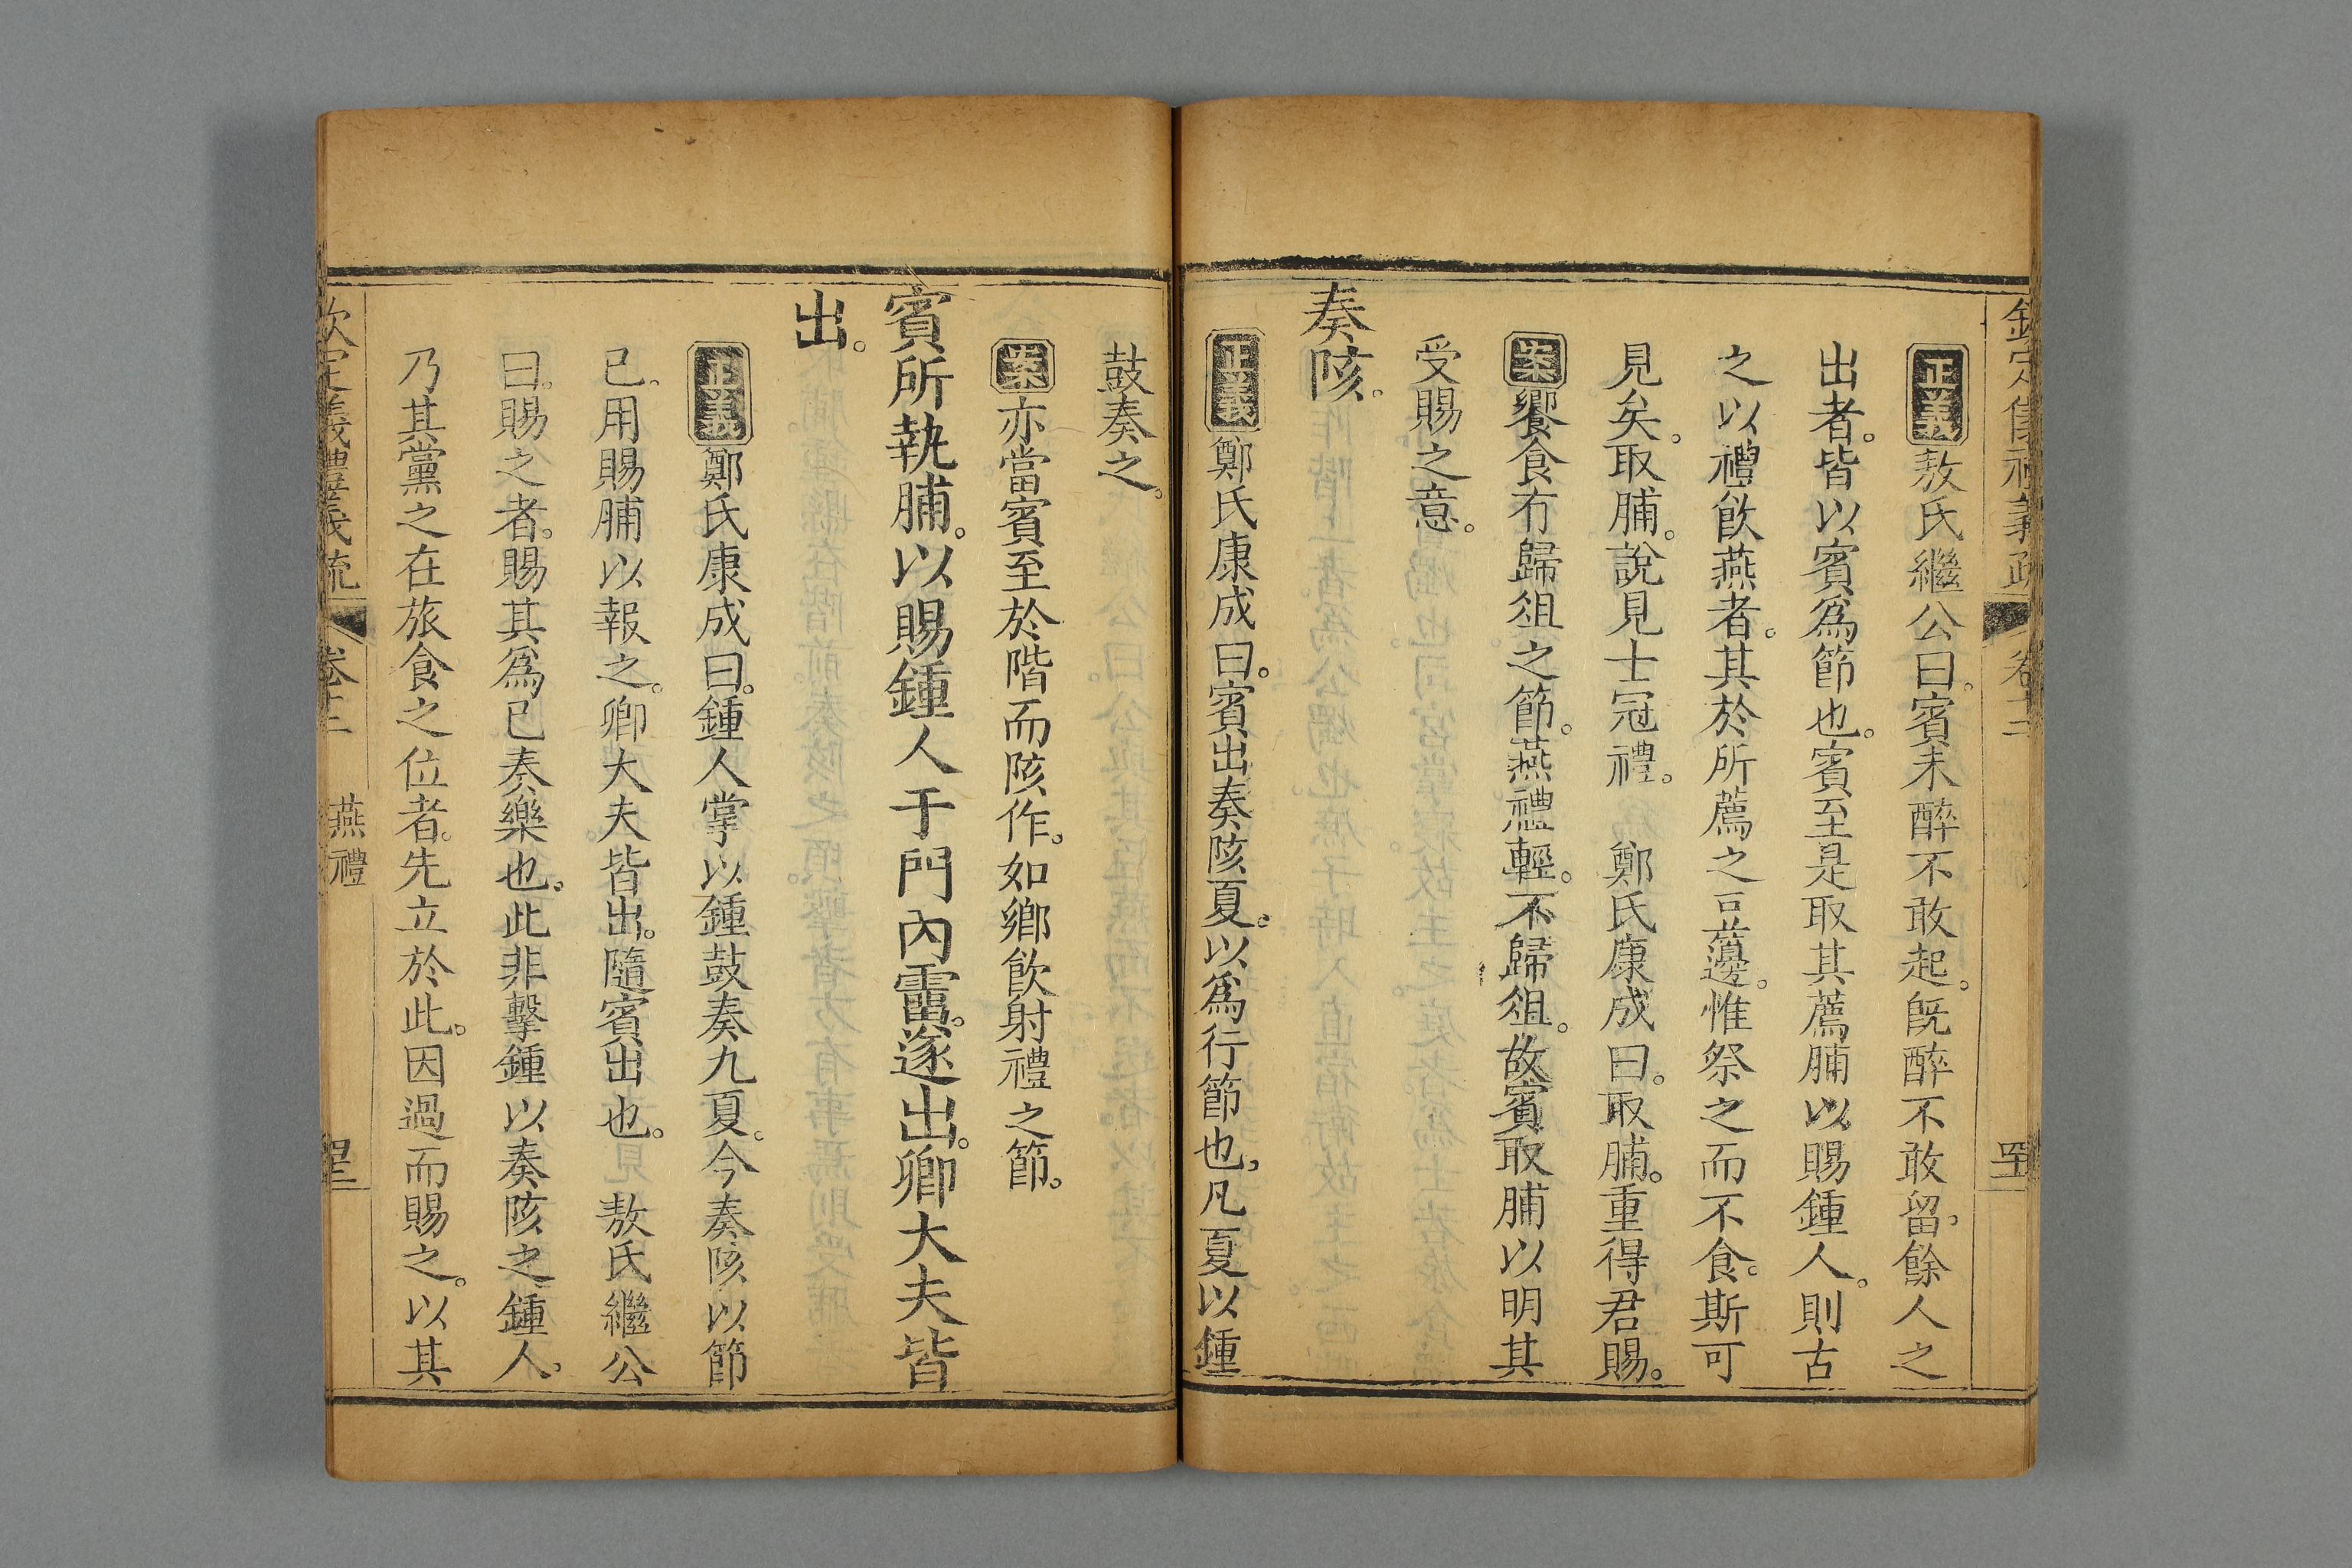 欽定儀禮義疏 卷十二
正義敖氏繼公曰。賓未醉不敢起。旣醉不敢留。餘人之
出者。皆以賓爲節也。賓至是取其薦脯以賜鍾人。則古
之以禮飮燕者。其於所薦之豆籩。惟祭之而不食。斯可
見矣。取脯。說見士冠禮。 鄭氏康成曰。取脯。重得君賜。
案饗食有歸俎之節。燕禮輕。不歸俎。故賓取脯以明其
受賜之意。
奏陔。
正義鄭氏康成曰。賓出奏陔夏。以爲行節也。凡夏以鍾
鼓奏之。
案亦當賓至於階而陔作。如鄉飮射禮之節。
賓所執脯。以賜鍾人于門內霤。遂出。卿大夫皆
出。
正義鄭氏康成曰。鍾人掌以鍾鼓奏九夏。今奏陔以節
已。用賜脯以報之。卿大夫皆出。隨賓出也。 敖氏繼公
曰。賜之者。賜其爲已奏樂也。此非擊鍾以奏陔之鍾人。
乃其黨之在旅食之位者。先立於此。因過而賜之。以其
欽定義禮義疏 卷十二 燕禮